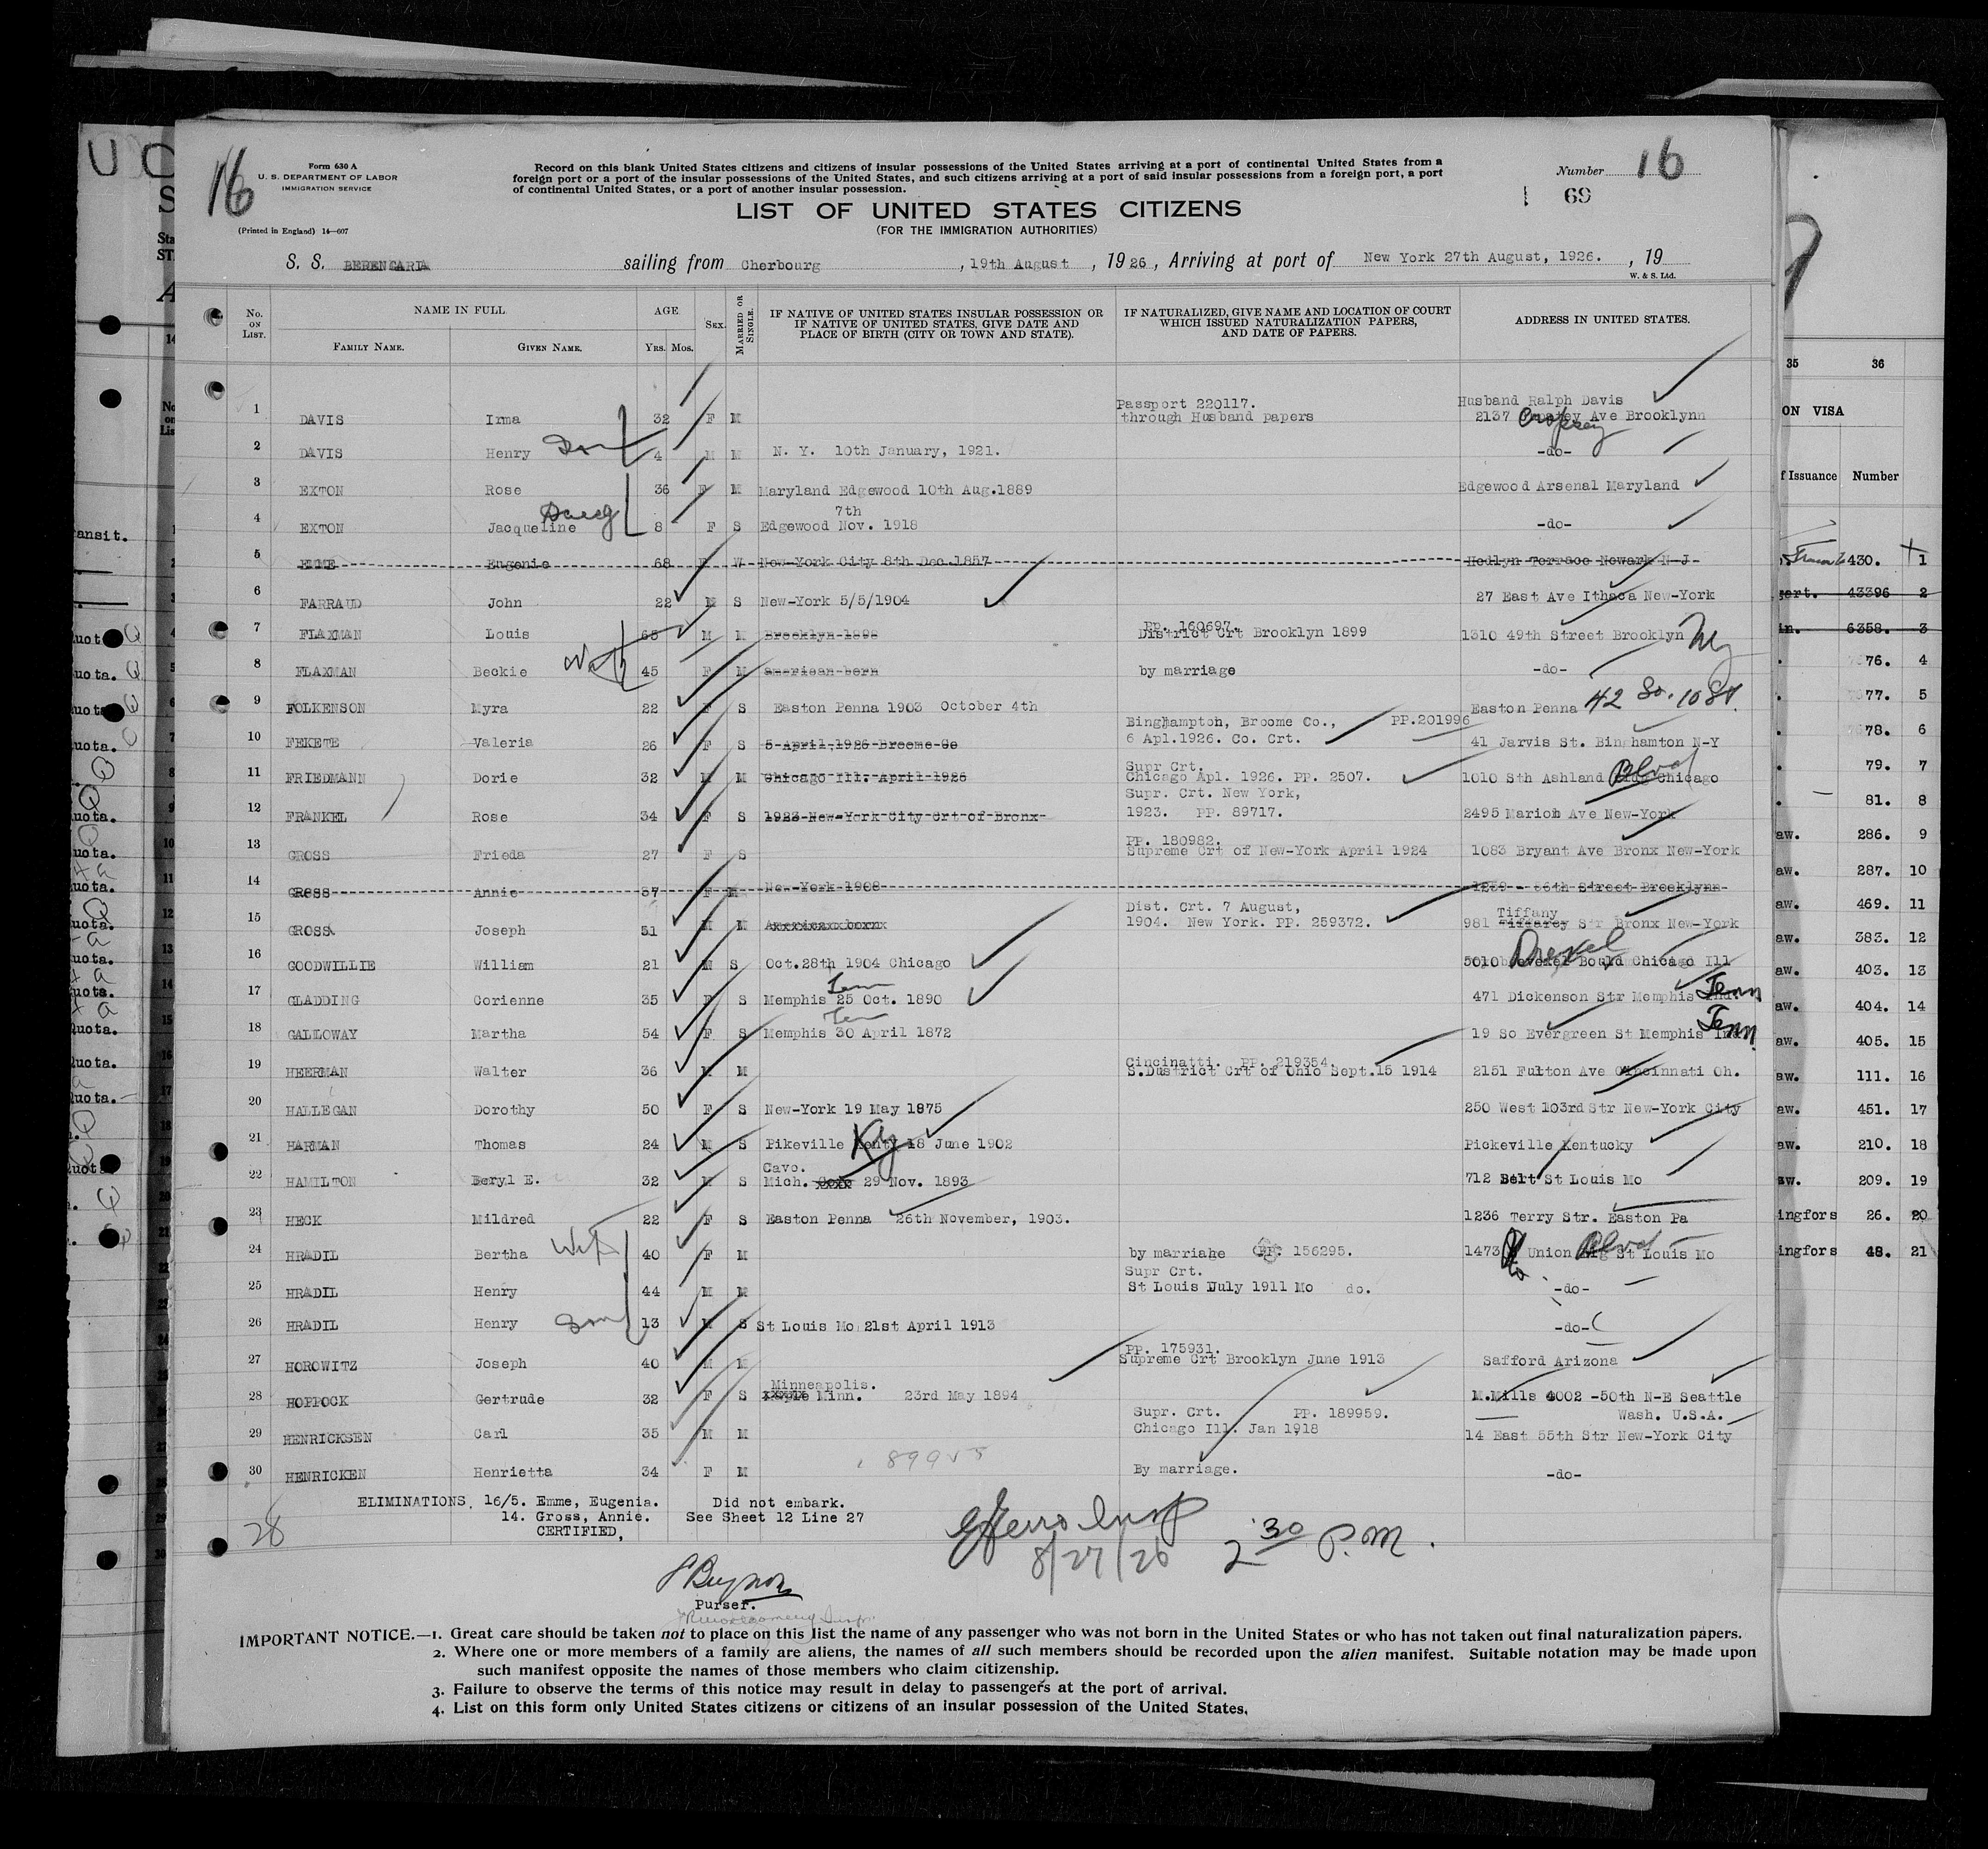 16
Form 630 A
U. S. DEPARTMENT OF LABOR
IMMIGRATION SERVICE
(Printed in England) 14—607
Record on this blank United States citizens and citizens of insular possessions of the United States arriving at a port of continental United States from a
foreign port or a port of the insular possessions of the United States, and such citizens arriving at a port of said insular possessions from a foreign port, a port
of continental United States, or a port of another insular possession.
Number 16
69
LIST OF UNITED STATES CITIZENS
(FOR THE IMMIGRATION AUTHORITIES)
S. S. BERENGARIA sailing from Cherbourg , 19th August , 1926 , Arriving at port of New York 27th August, 1926. , 19
W. & S. Ltd.
No. ON LIST. NAME IN FULL FAMILY NAME. GIVEN NAME. AGE YRS. MOS. SEX. MARRIED OR SINGLE. IF NATIVE OF UNITED STATES INSULAR POSSESSION OR IF NATIVE OF UNITED STATES, GIVE DATE AND PLACE OF BIRTH (CITY OR TOWN AND STATE). IF NATURALIZED, GIVE NAME AND LOCATION OF COURT WHICH ISSUED NATURALIZATION PAPERS, AND DATE OF PAPERS. ADDRESS IN UNITED STATES.
Passport 220117. Husband Ralph Davis
1 DAVIS Irma 32 F M through Husband papers 2137 Cropsey Ave Brooklynn
2 DAVIS Henry Son 4 M M N. Y. 10th January, 1921. -do-
3 EXTON Rose 36 F M Maryland Edgewood 10th Aug.1889 Edgewood Arsenal Maryland
7th
4 EXTON Jacqueline Daug 8 F S Edgewood Nov. 1918 -do-
5 EMME Eugenie 68 F W New-York City 8th Dec.1857 Hedlyn Terrace Newark N-J-
6 FARRAUD John 22 M S New-York 5/5/1904 27 East Ave Ithaca New-York
PP. 160697.
7 FLAXMAN Louis 65 M M Brooklyn-1898 District Crt Brooklyn 1899 1310 49th Street Brooklyn NY
8 FLAXMAN Beckie Wife 45 F M american-born by marriage -do-
9 FOLKENSON Myra 22 F S Easton Penna 1903 October 4th Easton Penna 42 So. 10 St.
Binghampton, Broome Co., PP.201996
10 FEKETE Valeria 26 F S 5-April-1926-Broome-Co 6 Apl.1926. Co. Crt. 41 Jarvis St. Binghamton N-Y
Supr Crt.
11 FRIEDMANN Dorie 32 M M Chicago-Ill.-April-1926 Chicago Apl. 1926. PP. 2507. 1010 Sth Ashland Blvd Chicago
Supr. Crt. New York,
12 FRANKEL Rose 34 F S 1923-New-York-City-Crt-of-Bronx- 1923. PP. 89717. 2495 Marion Ave New-York
PP. 180982.
13 GROSS Frieda 27 F S Supreme Crt of New-York April 1924 1083 Bryant Ave Bronx New-York
14 GROSS Annie 57 F M New-York 1908 1259 - 56th Street Brooklynn-
Dist. Crt. 7 August, Tiffany
15 GROSS Joseph 51 M M 1904. New York. PP. 259372. 981 Str Bronx New-York
16 GOODWILLIE William 21 M S Oct.28th 1904 Chicago 5010 Drexel Bould Chicago Ill
17 GLADDING Corienne 35 F S Memphis Tenn 25 Oct. 1890 471 Dickenson Str Memphis Tenn
18 GALLOWAY Martha 54 F S Memphis Ten 30 April 1872 19 So Evergreen St Memphis Tenn.
Cincinatti. PP. 219354.
19 HEERMAN Walter 36 M M S.Dustrict Crt of Ohio Sept.15 1914 2151 Fulton Ave Cincinnati Oh.
20 HALLEGAN Dorothy 50 F S New-York 19 May 1875 250 West 103rd Str New-York City
21 HARMAN Thomas 24 M S Pikeville Ky 18 June 1902 Pickeville Kentucky
Cavo.
22 HAMILTON Beryl E. 32 M S Mich. 29 Nov. 1893 712 Belt St Louis Mo
23 HECK Mildred 22 F S Easton Penna 26th November, 1903. 1236 Terry Str. Easton Pa
24 HRADIL Bertha Wife 40 F M by marriahe PP. 156295. 1473 Union Blvd St Louis Mo
Supr Crt.
25 HRADIL Henry 44 M M St Louis July 1911 Mo do. -do-
26 HRADIL Henry Son 13 M S St Louis Mo 21st April 1913 -do-
PP. 175931.
27 HOROWITZ Joseph 40 M M Supreme Crt Brooklyn June 1913 Safford Arizona
Minneapolis.
28 HOPPOCK Gertrude 32 F S Minn. 23rd May 1894 M.Mills 4002 -50th N-E Seattle
Supr. Crt. PP. 189959. Wash. U.S.A.
29 HENRICKSEN Carl 35 M M Chicago Ill. Jan 1918 14 East 55th Str New-York City
30 HENRICKEN Henrietta 34 F M By marriage. -do-
ELIMINATIONS. 16/5. Emme, Eugenia. Did not embark.
14. Gross, Annie. See Sheet 12 Line 27
CERTIFIED,
28
8/27/26 2 30 P.M.
Purser.
IMPORTANT NOTICE.—1. Great care should be taken not to place on this list the name of any passenger who was not born in the United States or who has not taken out final naturalization papers.
2. Where one or more members of a family are aliens, the names of all such members should be recorded upon the alien manifest. Suitable notation may be made upon
such manifest opposite the names of those members who claim citizenship.
3. Failure to observe the terms of this notice may result in delay to passengers at the port of arrival.
4. List on this form only United States citizens or citizens of an insular possession of the United States.
35 36
ON VISA
f Issuance Number
430. 1
43396 2
6358. 3
76. 4
77. 5
78. 6
79. 7
81. 8
aw. 286. 9
aw. 287. 10
aw. 469. 11
aw. 383. 12
aw. 403. 13
aw. 404. 14
aw. 405. 15
aw. 111. 16
aw. 451. 17
aw. 210. 18
aw. 209. 19
ingfors 26. 20
ingfors 48. 21